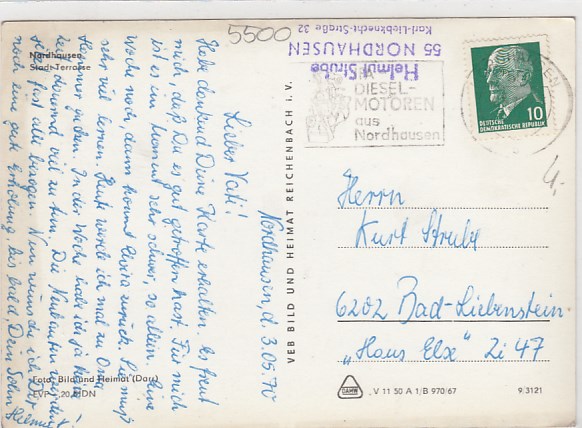 Nordhausen
Stadt-Terrasse
5500
Helmut Strube
55 NORDHAUSEN
Karl-Liebknecht-Straße 32
DIESEL-
MOTOREN
aus
Nordhausen
10
DEUTSCHE
DEMOKRATISCHE REPUBLIK
4,-
Nordhausen, d. 3.05.70
Lieber Vati!
Habe dankend Deine Karte erhalten. Es freut
mich, daß Du es gut getroffen hast. Für mich
ist es im Moment sehr schwer, so allein. Eine
Woche noch, dann kommt zurück. Sie muß
sehr viel lernen. Heute werde ich mal zu Oma
Hermer gehen. In der Woche habe ich ja keine
Zeit, dauernd viel zu tun. Die Neubauten sind jetzt
fast alle bezogen. Nun wünsche ich Dir
noch eine gute Erholung, bis bald Dein Sohn Helmut
VEB BILD UND HEIMAT REICHENBACH i. V.
Herrn
Kurt Strube
6202 Bad-Liebenstein
„Haus Else" Zi 47
Foto: Bild und Heimat (Dau)
EVP -,20 MDN
DAMW
V 11 50 A 1/B 970/67
9/3121